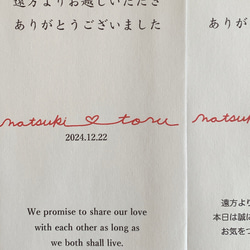 遠方よりお越しいただき
ありがとうございました
natsuki ♡ toru
2024.12.22
We promise to share our love
with each other as long as
we both shall live.
ありが
natsuki
遠方よ
本日は誠に
お気をつ